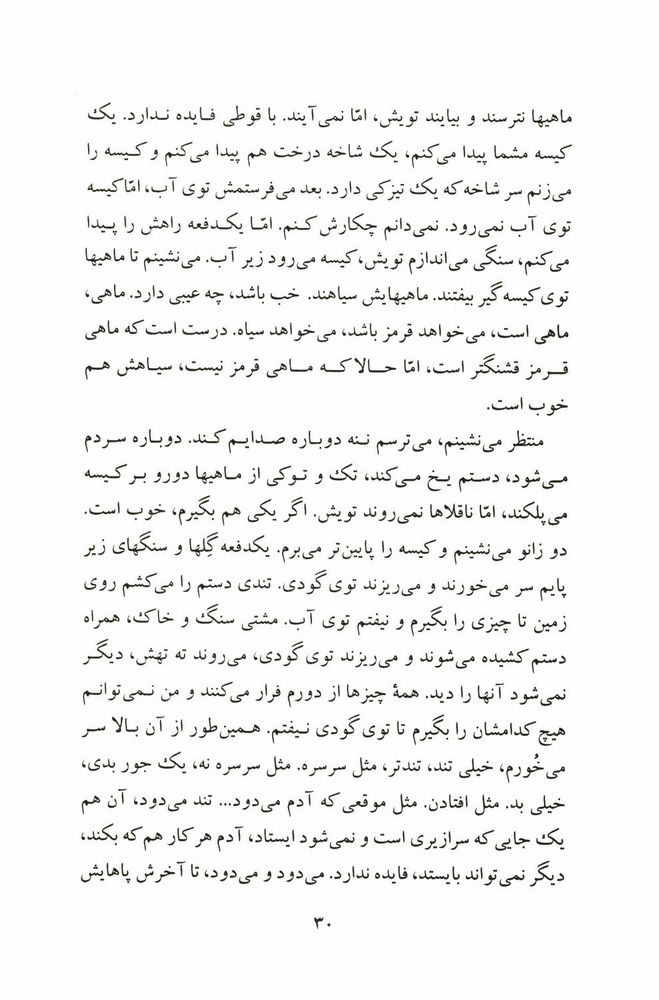 ماهیها نترسند و بیایند تویش، امّا نمی‌آیند. با قوطی فـایده نـدارد. یک
کیسه مشما پیدا می‌کنم، یک شاخه درخت هم پیدا می‌کنم و کـیسه را
می‌زنم سر شاخه که یک تیزکی دارد. بعد می‌فرستمش توی آب، امّا کیسه
توی آب نمی‌رود. نمی‌دانم چکارش کـنم. امّـا یکـدفعه راهش را پـیدا
می‌کنم، سنگی می‌اندازم تویش، کیسه می‌رود زیر آب. می‌نشینم تا ماهیها
توی کیسه گیر بیفتند. ماهیهایش سیاهند. خب باشد، چه عیبی دارد. ماهی،
ماهی است، می‌خواهد قرمز باشد، می‌خواهد سیاه. درست است که ماهی
قـرمز قشنگتر است، امّا حـالا کـه مـاهی قرمز نیست، سیـاهش هـم
خوب است.
منتظر می‌نشینم، می‌ترسم ننه دوبـاره صدایـم کـند. دوباره سـردم
مـی‌شود، دستـم یـخ مـی‌کند، تک و تـوکی از مـاهیها دورو بـر کـیسه
می‌پلکند، امّا ناقلاها نمی‌روند تویش. اگر یکی هم بگیرم، خوب است.
دو زانو می‌نشینم و کیسه را پایین‌تر می‌برم. یکدفعه گِلها و سنگهای زیر
پایم سر می‌خورند و می‌ریزند توی گودی. تندی دستم را می‌کشم روی
زمین تا چیزی را بگیرم و نیفتم توی آب. مشتی سنگ و خاک، همراه
دستم کشیده می‌شوند و می‌ریزند توی گودی، می‌روند ته تهش، دیگـر
نمی‌شود آنها را دید. همهٔ چیزها از دورم فرار می‌کنند و من نـمی‌توانـم
هیچ کدامشان را بگیرم تا توی گودی نـیفتم. هـمین‌طور از آن بـالا سـر
می‌خُورم، خیلی تند، تندتر، مثل سرسره. مثل سرسره نه، یک جور بدی،
خیلی بد. مثل افتادن. مثل موقعی که آدم می‌دود... تند می‌دود، آن هم
یک جایی که سرازیری است و نمی‌شود ایستاد، آدم هر کار هم که بکند،
دیگر نمی‌تواند بایستد، فایده ندارد. می‌دود و می‌دود، تا آخرش پاهایش
۳۰